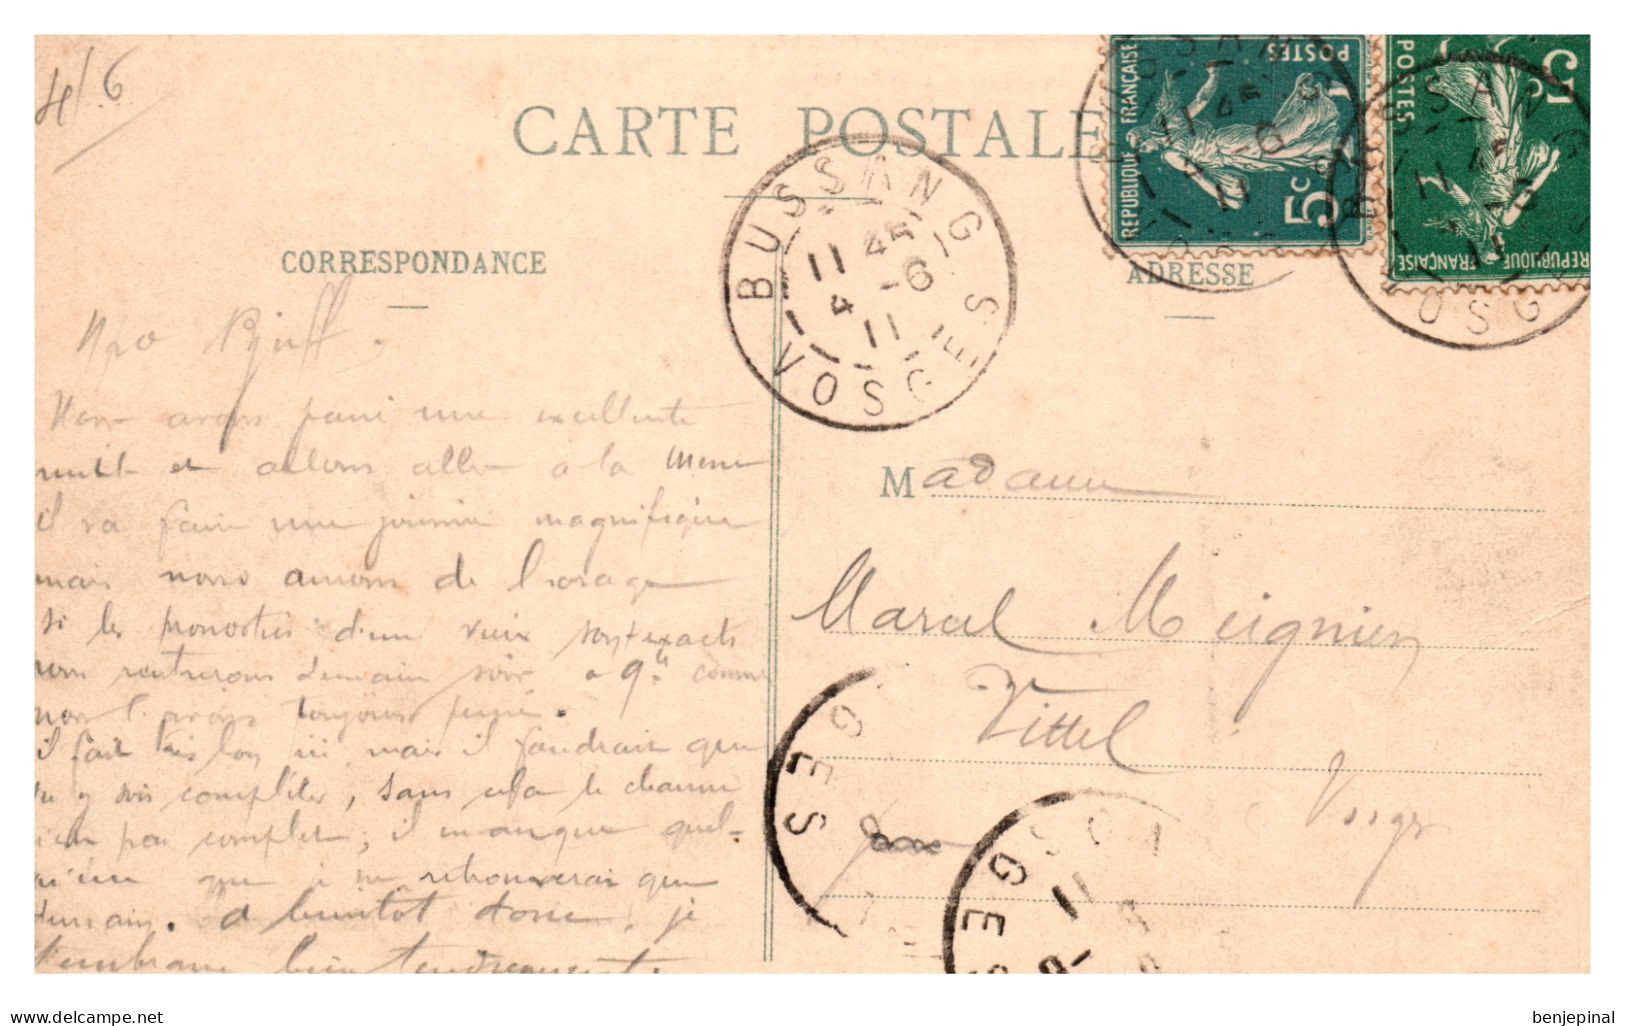 4/6
CARTE POSTALE
CORRESPONDANCE
ADRESSE
REPUBLIQUE FRANÇAISE
POSTES
5c
REPUBLIQUE FRANÇAISE
POSTES
5c
BUSSANG
11 45
4 -6
11
VOSGES
BUSSANG
11 45
-6
11
VOSGES
BUSSANG
11 45
-6
11
VOSG
Nous avons passé une excellente
nuit et allons aller à la Messe
il va faire une journée magnifique
mais nous aurons de l'orage
si les pronostics d'un vieux sont exacts
nous rentrerons demain soir à 9h comme
nous l'avions toujours pensé.
il fait très bon ici mais il faudrait que
tu y sois compléter, sans cela le charme
n'est pas complet; il manque quel-
qu'un que je ne retrouverai que
demain. A bientôt donc, je
t'embrasse bien tendrement.
Madame
Marcel Meignien
Vittel
Vosges
GES
VOSGES
11
delcampe.net
benjepinal